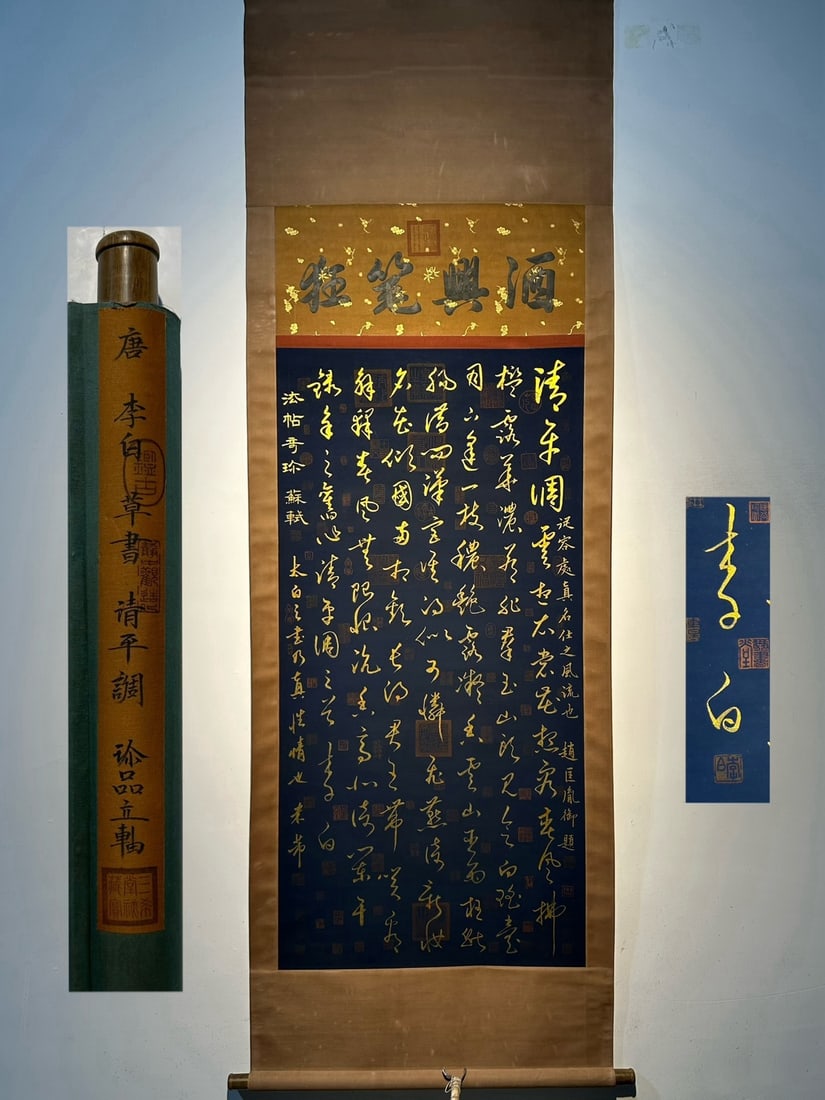 唐 李白草書 清平調 珍品立軸
酒興筆狂
清平調 雲想衣裳花想容春風拂
從容處真名仕之風流也 趙匡胤御題
檻露華濃若非群玉山頭見會向瑤臺
月下逢一枝穠艷露凝香雲雨巫山枉斷
腸借問漢宮誰得似可憐飛燕倚新妝
名花傾國兩相歡長得君王帶笑看
解釋春風無限恨沉香亭北倚闌干
清平調三首 李白
法帖奇珍 蘇軾 太白之書乃真性情也 米芾
李白